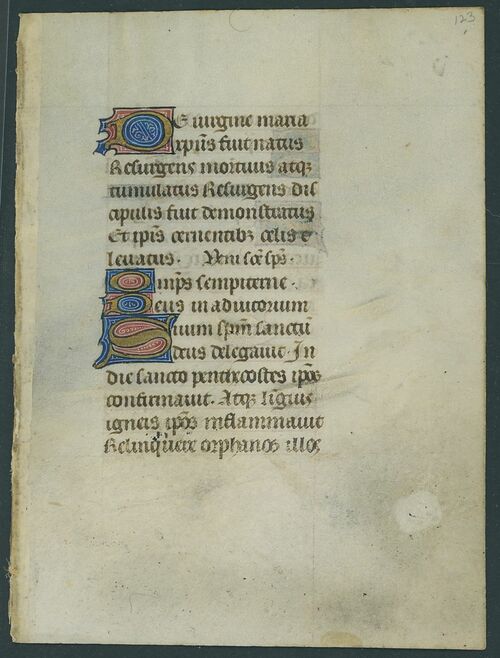 123
DE virgine maria
xpūs fuit natus
Resurgens mortuus atqꝫ
tumulatus Resurgens dis
cipulis fuit demonstratus
Et ipīs cernentibꝫ celis e
levatus. Veni scē sps.
Omps sempiterne.
Deus in adiutorium
Suum spm sanctū
deus delegavit. In
die sancto pentecostes ipōs
confirmavit. Atqꝫ lignis
igneis ipōs inflammavit
Relinquere orphanos illos